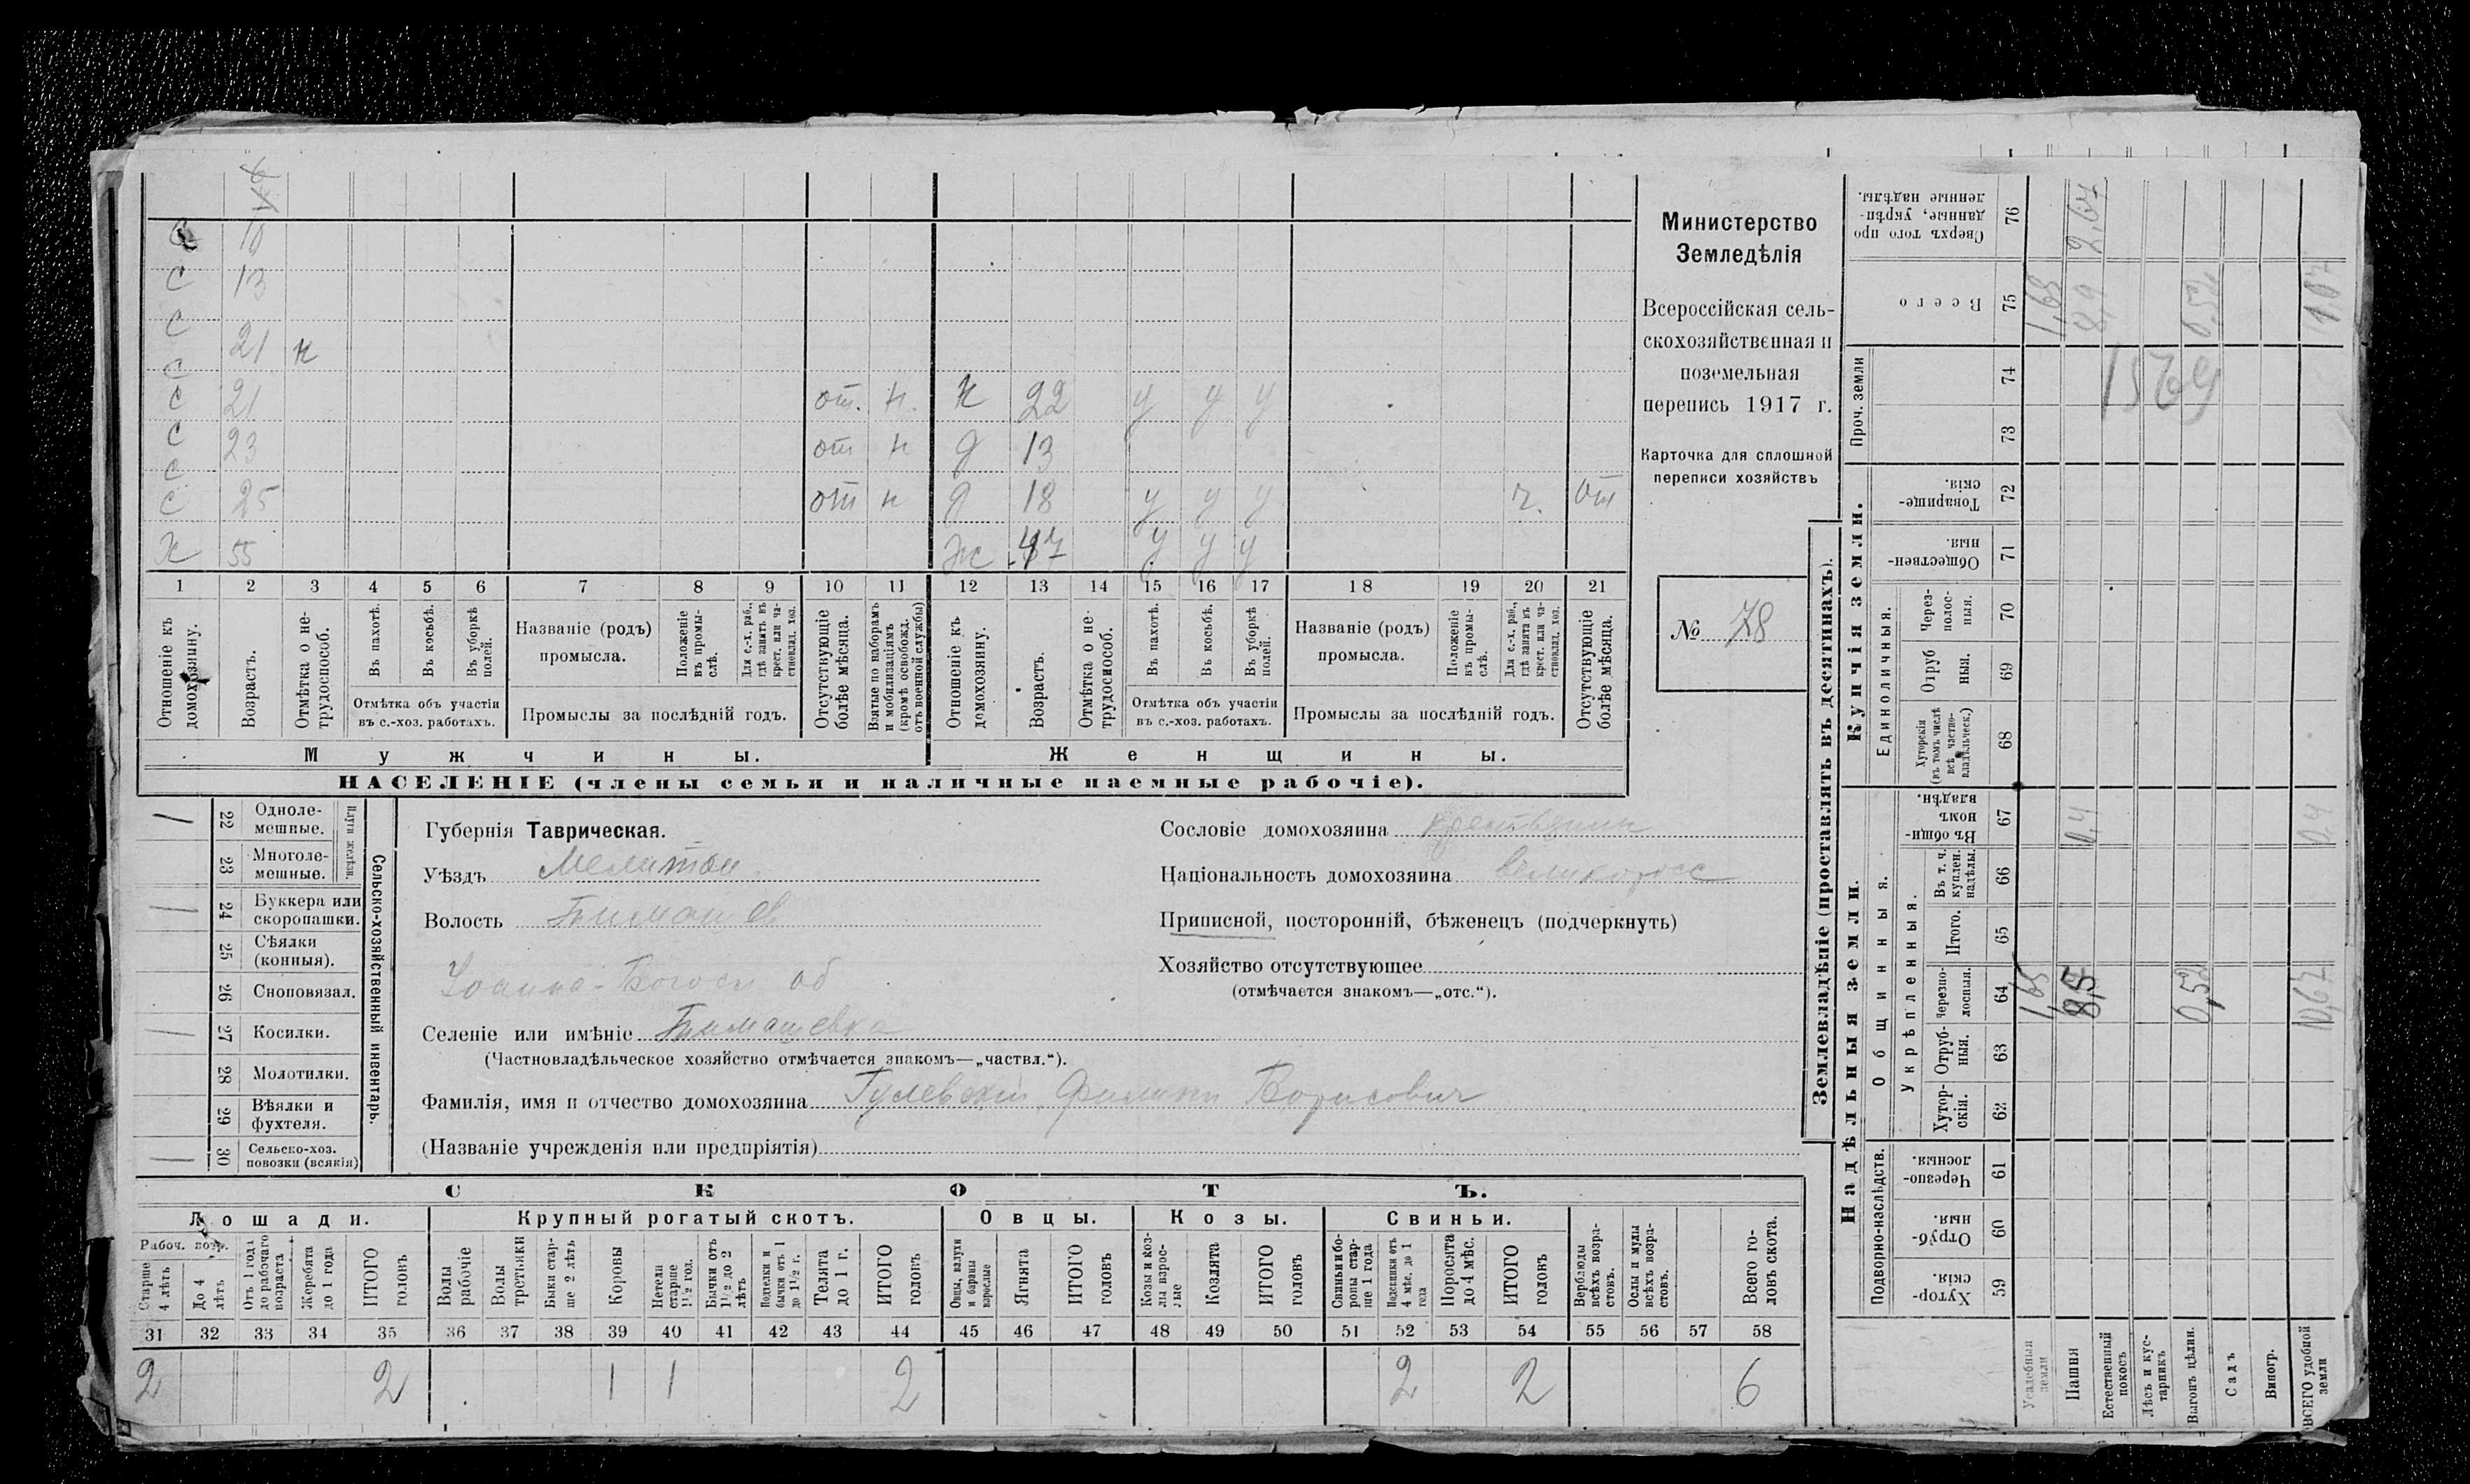 Министерство
Земледѣлія
Всероссійская сель-
скохозяйственная и
поземельная
перепись 1917 г.
Карточка для сплошной
переписи хозяйствъ
№ 78
С 10
С 13
С
С 21 н
С 21 от. н. н 22 у у у
С 23 от н д 13
С
С 25 от н д 18 у у у г. от
Х 55 Ж 47 у у у
1 2 3 4 5 6 7 8 9 10 11 12 13 14 15 16 17 18 19 20 21
Отношеніе къ домохозяину.
Возрастъ.
Отмѣтка о не-трудоспособ.
Въ пахотѣ.
Въ косьбѣ.
Въ уборкѣ полей.
Отмѣтка объ участіи въ с.-хоз. работахъ.
Названіе (родъ) промысла.
Положеніе въ промы-слѣ.
Для с.-х. раб., гдѣ занятъ въ крест. или ча-стновлад. хоз.
Промыслы за послѣдній годъ.
Отсутствующіе болѣе мѣсяца.
Взятые по наборамъ и мобилизаціямъ (кромѣ освобожд. отъ военной службы)
Отношеніе къ домохозяину.
Возрастъ.
Отмѣтка о не-трудоспособ.
Въ пахотѣ.
Въ косьбѣ.
Въ уборкѣ полей.
Отмѣтка объ участіи въ с.-хоз. работахъ.
Названіе (родъ) промысла.
Положеніе въ промы-слѣ.
Для с.-х. раб., гдѣ занята въ крест. или ча-стновлад. хоз.
Промыслы за послѣдній годъ.
Отсутствующіе болѣе мѣсяца.
Мужчины. Женщины.
НАСЕЛЕНІЕ (члены семьи и наличные наемные рабочіе).
Сельско-хозяйственный инвентарь.
Плуги желѣзн.
22 Одноле-мешные.
23 Многоле-мешные.
24 Буккера или скоропашки.
25 Сѣялки (конныя).
26 Сноповязал.
27 Косилки.
28 Молотилки.
29 Вѣялки и фухтеля.
30 Сельско-хоз. повозки (всякія)
Губернія Таврическая.
Уѣздъ Мелитоп.
Волость Тимашев
Іоанно-Богосл об
Селеніе или имѣніе Тимашевка
(Частновладѣльческое хозяйство отмѣчается знакомъ—„частвл.“).
Фамилія, имя и отчество домохозяина Гулевскій Филипп Борисович
(Названіе учрежденія или предпріятія)
Сословіе домохозяина крестьянин
Національность домохозяина великоросс
Приписной, посторонній, бѣженецъ (подчеркнуть)
Хозяйство отсутствующее
(отмѣчается знакомъ—„отс.“).
СКОТЪ.
Лошади. Крупный рогатый скотъ. Овцы. Козы. Свиньи.
Рабоч. возр.
Старше 4 лѣтъ
До 4 лѣтъ
Отъ 1 года до рабочаго возраста
Жеребята до 1 года
ИТОГО головъ
Волы рабочіе
Волы третьяки
Быки стар-ше 2 лѣтъ
Коровы
Нетели старше 1½ год.
Бычки отъ 1½ до 2 лѣтъ
Подтелки и бычки отъ 1 до 1½ г.
Телята до 1 г.
ИТОГО головъ
Овцы, валухи и бараны взрослые
Ягнята
ИТОГО головъ
Козы и коз-лы взрос-лые
Козлята
ИТОГО головъ
Свиньи и бо-ровы стар-ше 1 года
Подсвинки отъ 4 мѣс. до 1 года
Поросята до 4 мѣс.
ИТОГО головъ
Верблюды всѣхъ возра-стовъ.
Ослы и мулы всѣхъ возра-стовъ.
Всего го-ловъ скота.
31 32 33 34 35 36 37 38 39 40 41 42 43 44 45 46 47 48 49 50 51 52 53 54 55 56 57 58
2 2 1 1 2 2 2 6
Землевладѣніе (проставлять въ десятинахъ).
Надѣльныя земли.
Купчія земли.
Проч. земли
Подворно-наслѣдств.
Общинныя.
Укрѣпленныя.
Единоличныя.
Хутор-скія. 59
Отруб-ныя. 60
Черезпо-лосныя. 61
Хутор-скія. 62
Отруб-ныя. 63
Черезпо-лосныя. 64
Итого. 65
Въ т. ч. куплен. надѣлы. 66
Въ общи-номъ владѣн. 67
Хуторскія (въ томъ числѣ всѣ частно-владѣльческ.) 68
Отруб ныя. 69
Через-полос-ныя. 70
Обществен-ныя. 71
Товарище-скія. 72
73
74
Всего 75
Сверхъ того про данные, укрѣп-ленные надѣлы. 76
Усадебныя земли 1,65 1,65
Пашня 8,5 0,4 8,9 2,67
Естественный покосъ
Лѣсъ и кус-тарникъ
Выгонъ цѣлин. 0,52 0,52
Садъ
Виногр.
ВСЕГО удобной земли 10,67 0,4 11,07
1569